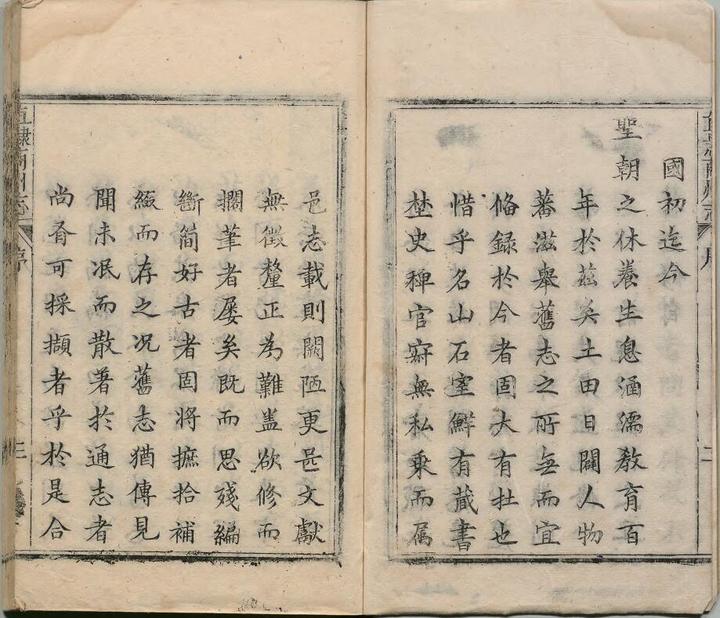 國初迄今
聖朝之休養生息涵濡教育百
年於茲矣土田日闢人物
蕃滋舉舊志之所無而宜
俻録於今者固大有在也
惜乎名山石室鮮有藏書
埜史稗官寂無私乘而属
邑志載則闕陋更甚文獻
無徵釐正為難盖欲修而
擱筆者屡矣既而思殘編
斷簡好古者固将摭拾補
綴而存之况舊志猶傳見
聞未泯而散著於通志者
尚有可採擷者乎於是合
直隷商州志
序